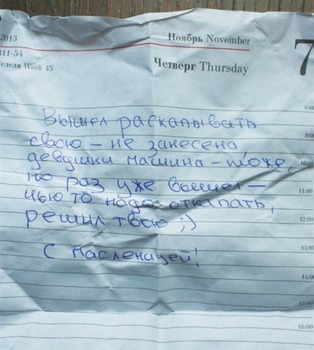 2013
Ноябрь November
7
311-54
Неделя Week 45
Четверг Thursday
Вышел раскапывать
свою - не занесена
девушки машина - тоже,
но раз уже вышел -
чью то надо откапать,
решил твою ;)
С масленицей!
8:00
9:00
10:00
11:00
12:00
13:00
14:00
15:00
16:00